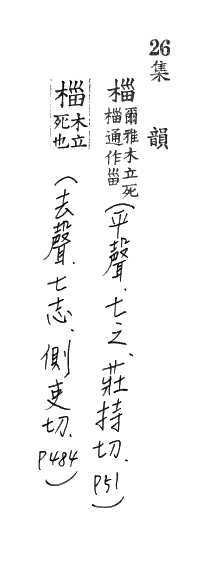 26集 韻
椔爾雅木立死椔通作甾(平聲.七之、莊持切.P51)
椔木立死也(去聲.七志.側吏切.P484)